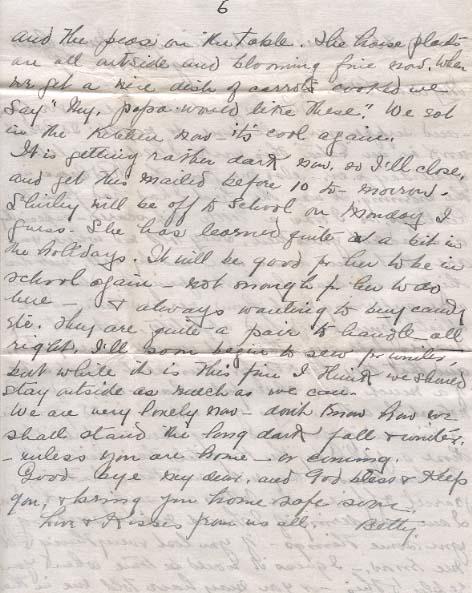 6
and the peas on the table. The house plants
are all outside and blooming fine now. When
we get a nice dish of carrots cooked we
say "My, papa would like these." We eat
in the kitchen now - it's cool again.
It is getting rather dark now, so I'll close,
and get this mailed before 10 to-morrow.
Shirley will be off to school on Monday I
guess. She has learned quite a bit in
the holidays. It will be good for her to be in
school again - not enough for her to do
here - & always wanting to buy candy
etc. They are quite a pair to handle all
right. I'll soon begin to sew for winter,
but while it is this fine I think we should
stay outside as much as we can.
We are very lonely now - don't know how we
shall stand the long dark fall & winter,
- unless you are home - or coming.
Good bye my dear, and God bless & keep
you, & bring you home safe soon.
Love & Kisses from us all. Betty.